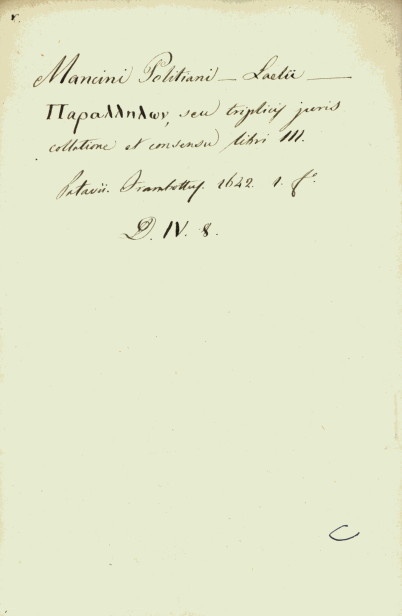 Mancini Politiani — Laelii —
Παραλληλων, seu triplicis juris
collatione et consensu libri III.
Patavii. Frambottus. 1642. 1. fº.
D. IV. 8.
C